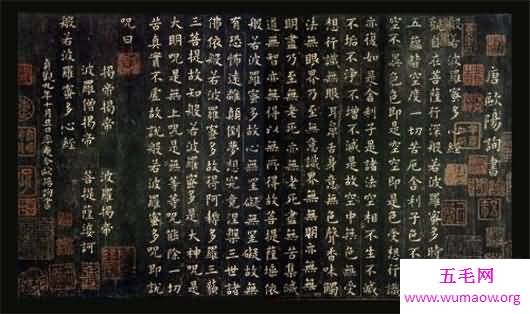 唐歐陽詢書
般若波羅蜜多心經
觀自在菩薩行深般若波羅蜜多時
五蘊皆空度一切苦厄舍利子色不異
空不異色色即是空空即是色受想行識
亦復如是舍利子是諸法空相不生不滅
不垢不淨不增不減是故空中無色無受
想行識無眼耳鼻舌身意無色聲香味觸
法無眼界乃至無意識界無無明亦無無
明盡乃至無老死亦無老死盡無苦集滅
道無智亦無得以無所得故菩提薩埵依
般若波羅蜜多故心無罣礙無罣礙故無
有恐怖遠離顛倒夢想究竟涅槃三世諸
佛依般若波羅蜜多故得阿耨多羅三藐
三菩提故知般若波羅蜜多是大神咒是
大明咒是無上咒是無等等咒能除一切
苦真實不虛故說般若波羅蜜多咒即說
咒曰
揭帝揭帝 波羅揭帝
波羅僧揭帝 菩提薩婆訶
般若波羅蜜多心經
五毛网
www.wumaow.org